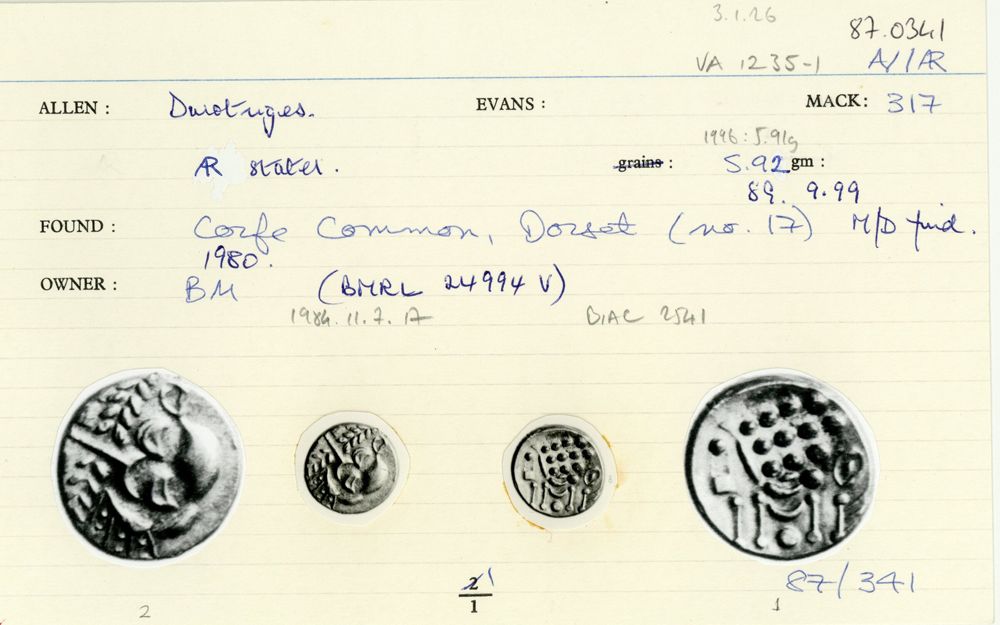 3.1.26
87.0341
VA 1235-1 A/1AR
ALLEN : Durotriges. EVANS : MACK: 317
1996: 5.91g
AR stater. grains : 5.92 gm :
89. 9.99
FOUND : Corfe Common, Dorset (no. 17) M/D find.
1980.
OWNER : BM (BMRL 24994 V)
1984. 11. 7. 17 BIAC 2541
2 1
1
87/341
2 1